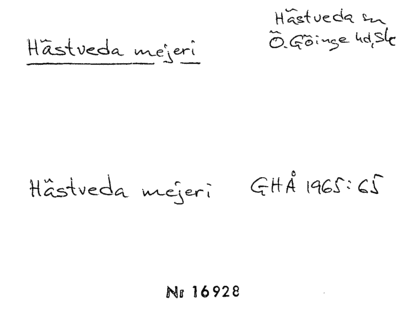 Hästveda mejeri
Hästveda sn
Ö. Göinge hd, Sk
Hästveda mejeri GHÅ 1965:65
Nr 16928